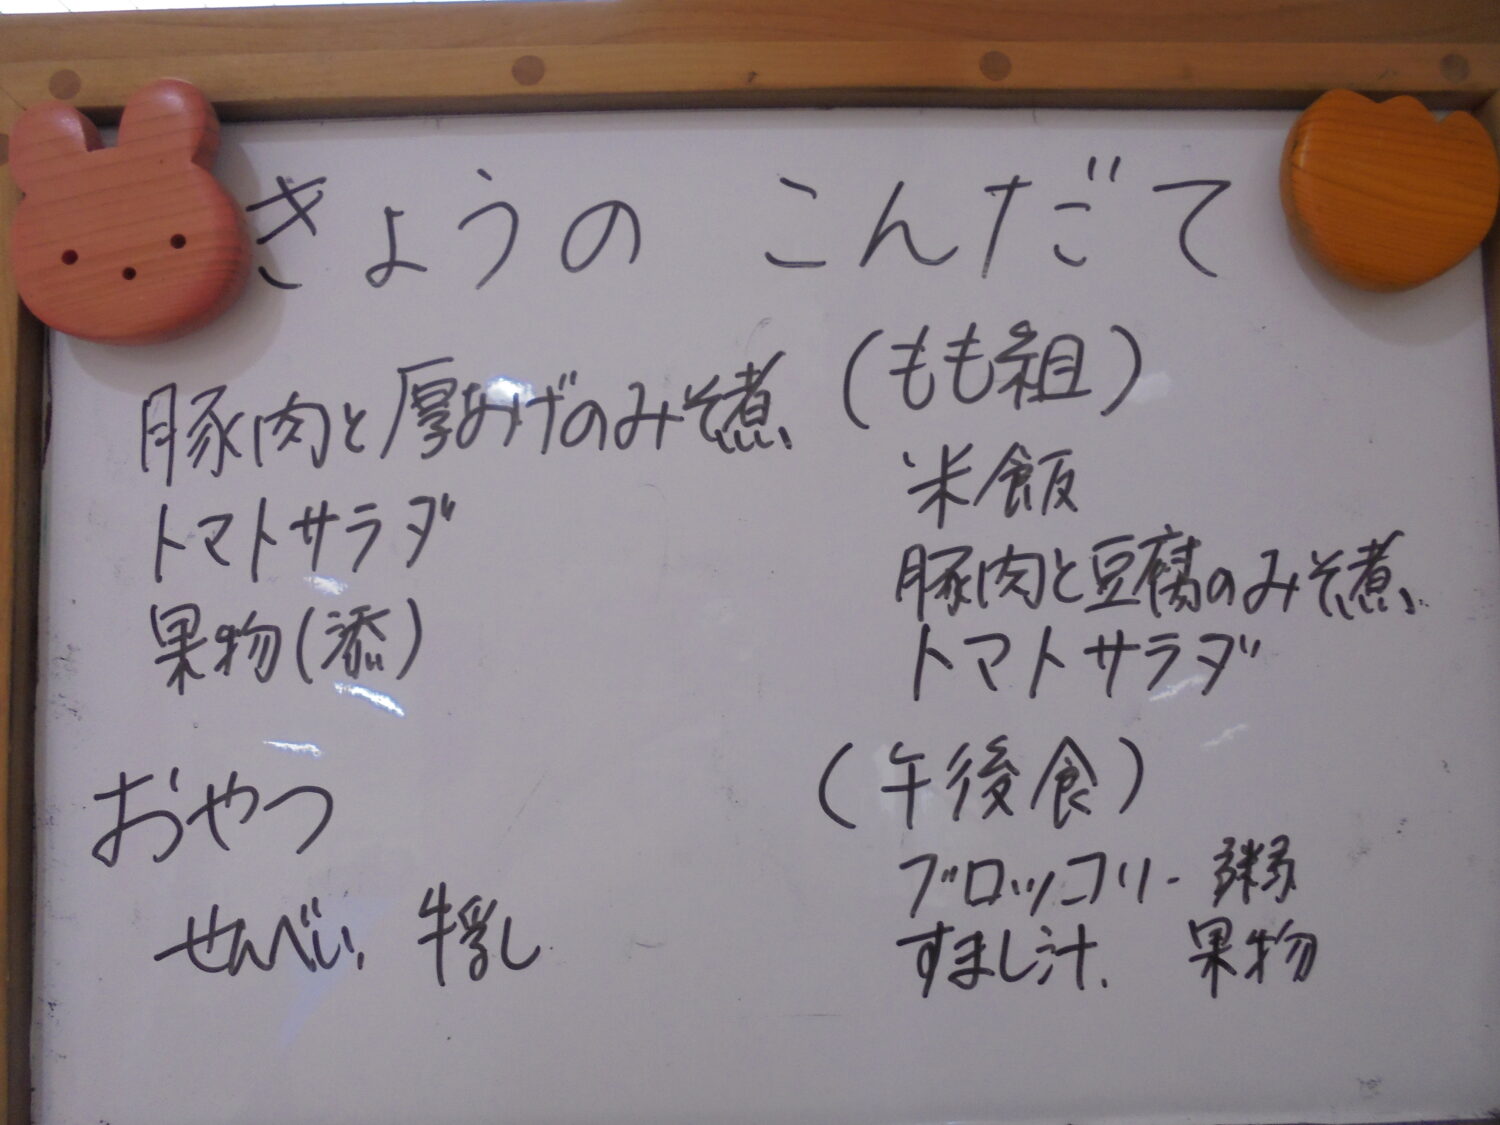 きょうの こんだて
豚肉と厚あげのみそ煮
トマトサラダ
果物(添)
おやつ
せんべい 牛乳
(もも組)
米飯
豚肉と豆腐のみそ煮
トマトサラダ
(午後食)
ブロッコリー粥
すまし汁 果物